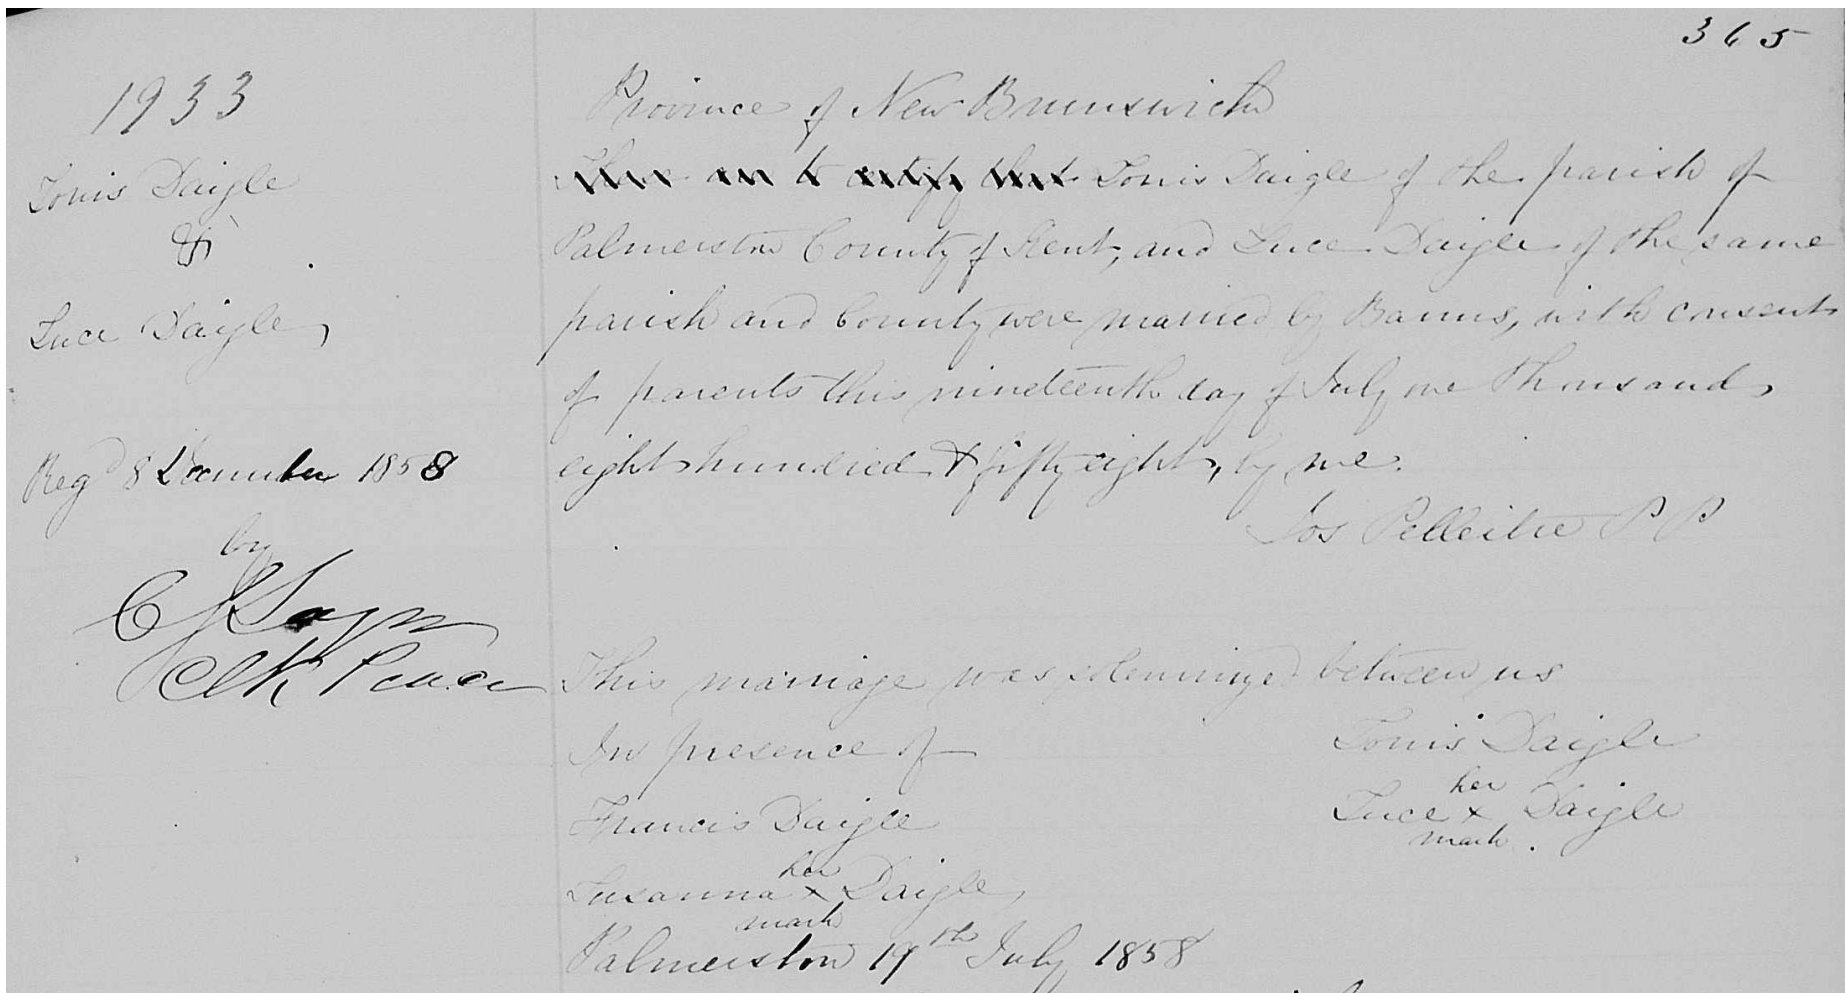 365
1933
Louis Daigle
&
Luce Daigle
Regd 8 December 1858
by
Clk Peace
Province of New Brunswick
This is to certify that Louis Daigle of the parish of
Palmerston County of Kent, and Luce Daigle of the same
parish and County were married by Banns, with consent
of parents this nineteenth day of July one thousand
eight hundred & fifty eight, by me.
Jos Pelletier P P
This marriage was solemnized between us
In presence of
Louis Daigle
her
Luce x Daigle
mark.
Francis Daigle
her
Susanna x Daigle
mark
Palmerston 19th July 1858